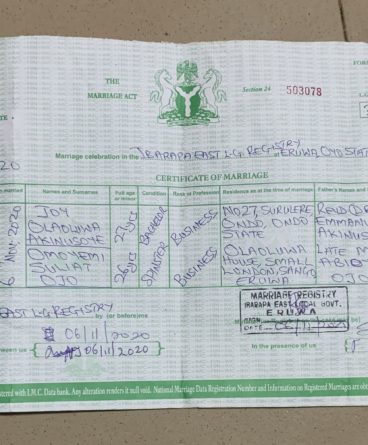 FOR
THE
MARRIAGE ACT
Section 24 503078
L.G
20
Marriage celebration in the IBARAPA EAST L.G. REGISTRY
at ERUWA, OYO STATE
CERTIFICATE OF MARRIAGE
married
Names and Surnames
Full age or minor
Condition
Rank or Profession
Residence as at the time of marriage
Father's Names and
6 NOV, 2020
JOY
OLAOLUWA
AKINUSOYE
27 yrs
BACHELOR
BUSINESS
NO 27, SURULERE
ONDO, ONDO
STATE
EMMANU
AKINUS
OMONIYI
SULIAT
OJO
26 yrs
SPINSTER
BUSINESS
OLAOLUWA
HOUSE, SMALL
LONDON, SANGO
ERUWA
LATE
OJO
EAST L.G REGISTRY
by (or before) me
MARRIAGE REGISTRY
IBARAPA EAST LOCAL GOVT.
ERUWA
SIGN
DATE
06/11/2020
between us
06/11/2020
In the presence of us
stered with I.M.C. Data bank, Any alteration renders it null void. National Marriage Data Registration Number and Information on Registered Marriages are